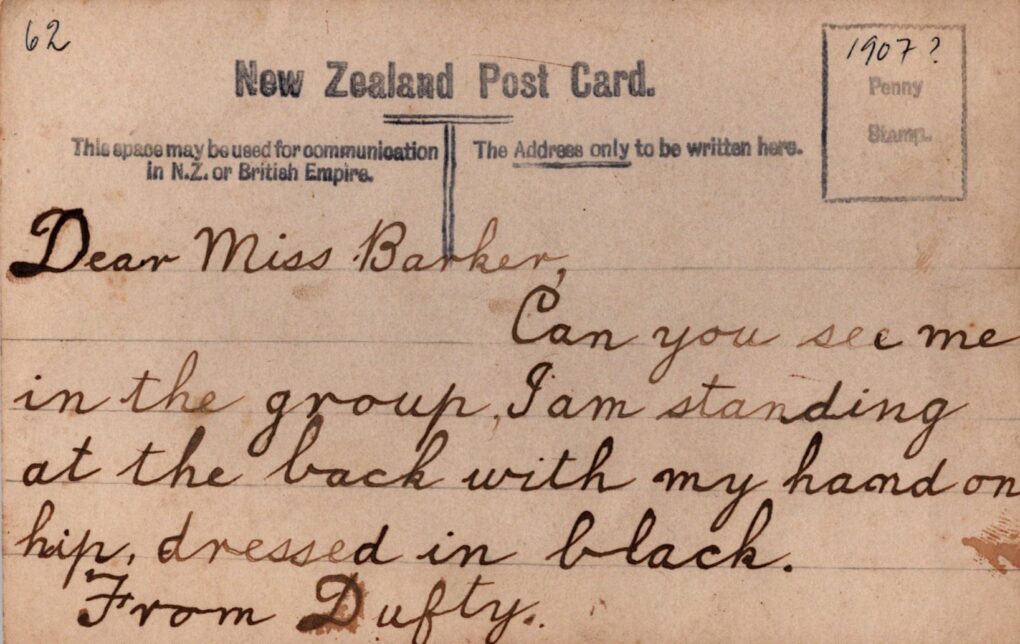 62
1907?
New Zealand Post Card.
Penny
Stamp.
This space may be used for communication
in N.Z. or British Empire.
The Address only to be written here.
Dear Miss Barker,
Can you see me
in the group, I am standing
at the back with my hand on
hip, dressed in black.
From Dufty.